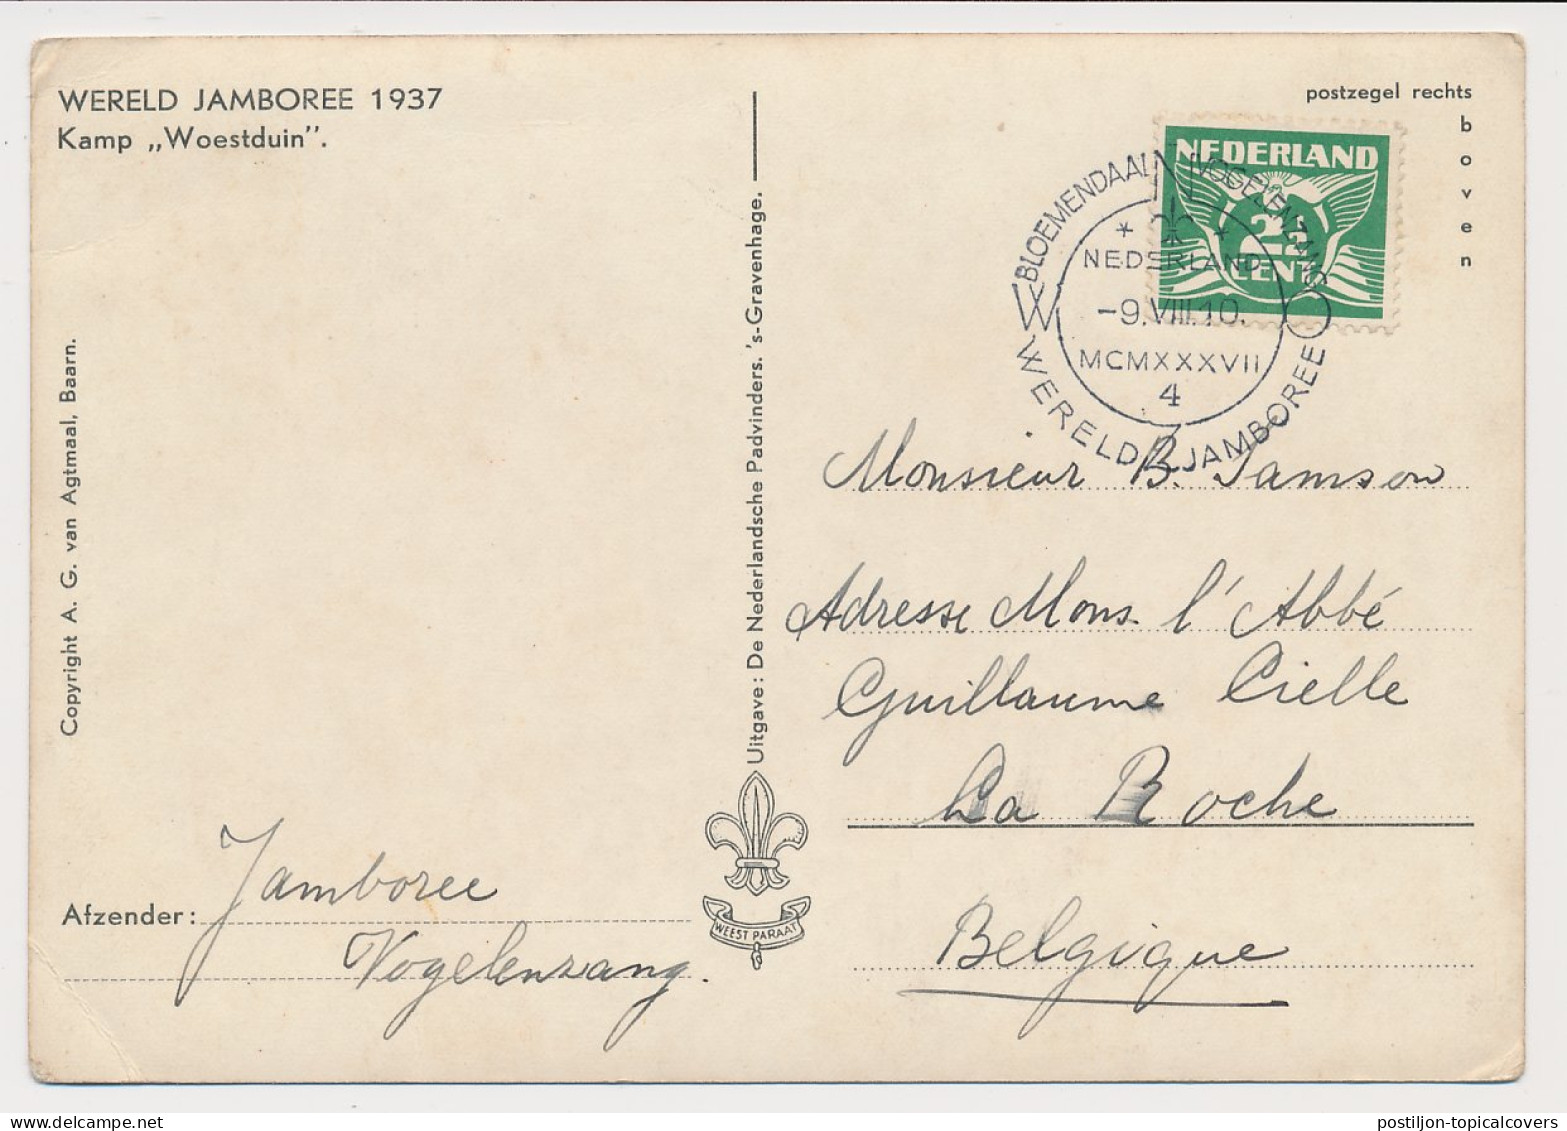 WERELD JAMBOREE 1937
Kamp „Woestduin”.
postzegel rechts
boven
NEDERLAND
2½
CENT
BLOEMENDAAL N VOGELENZANG
NEDERLAND
-9.VIII.10.
MCMXXXVII
4
W Z O
WERELD JAMBOREE
Copyright A. G. van Agtmaal, Baarn.
Uitgave: De Nederlandsche Padvinders. 's-Gravenhage.
Monsieur B. Samson
Adresse Mons. l'Abbé
Guillaume Cielle
La Roche
Belgique
WEEST PARAAT
Afzender: Jamboree
Vogelenzang.
postiljon-topicalcovers